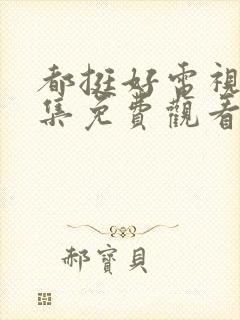 都挺好電視
集免費觀看
郝寶貝